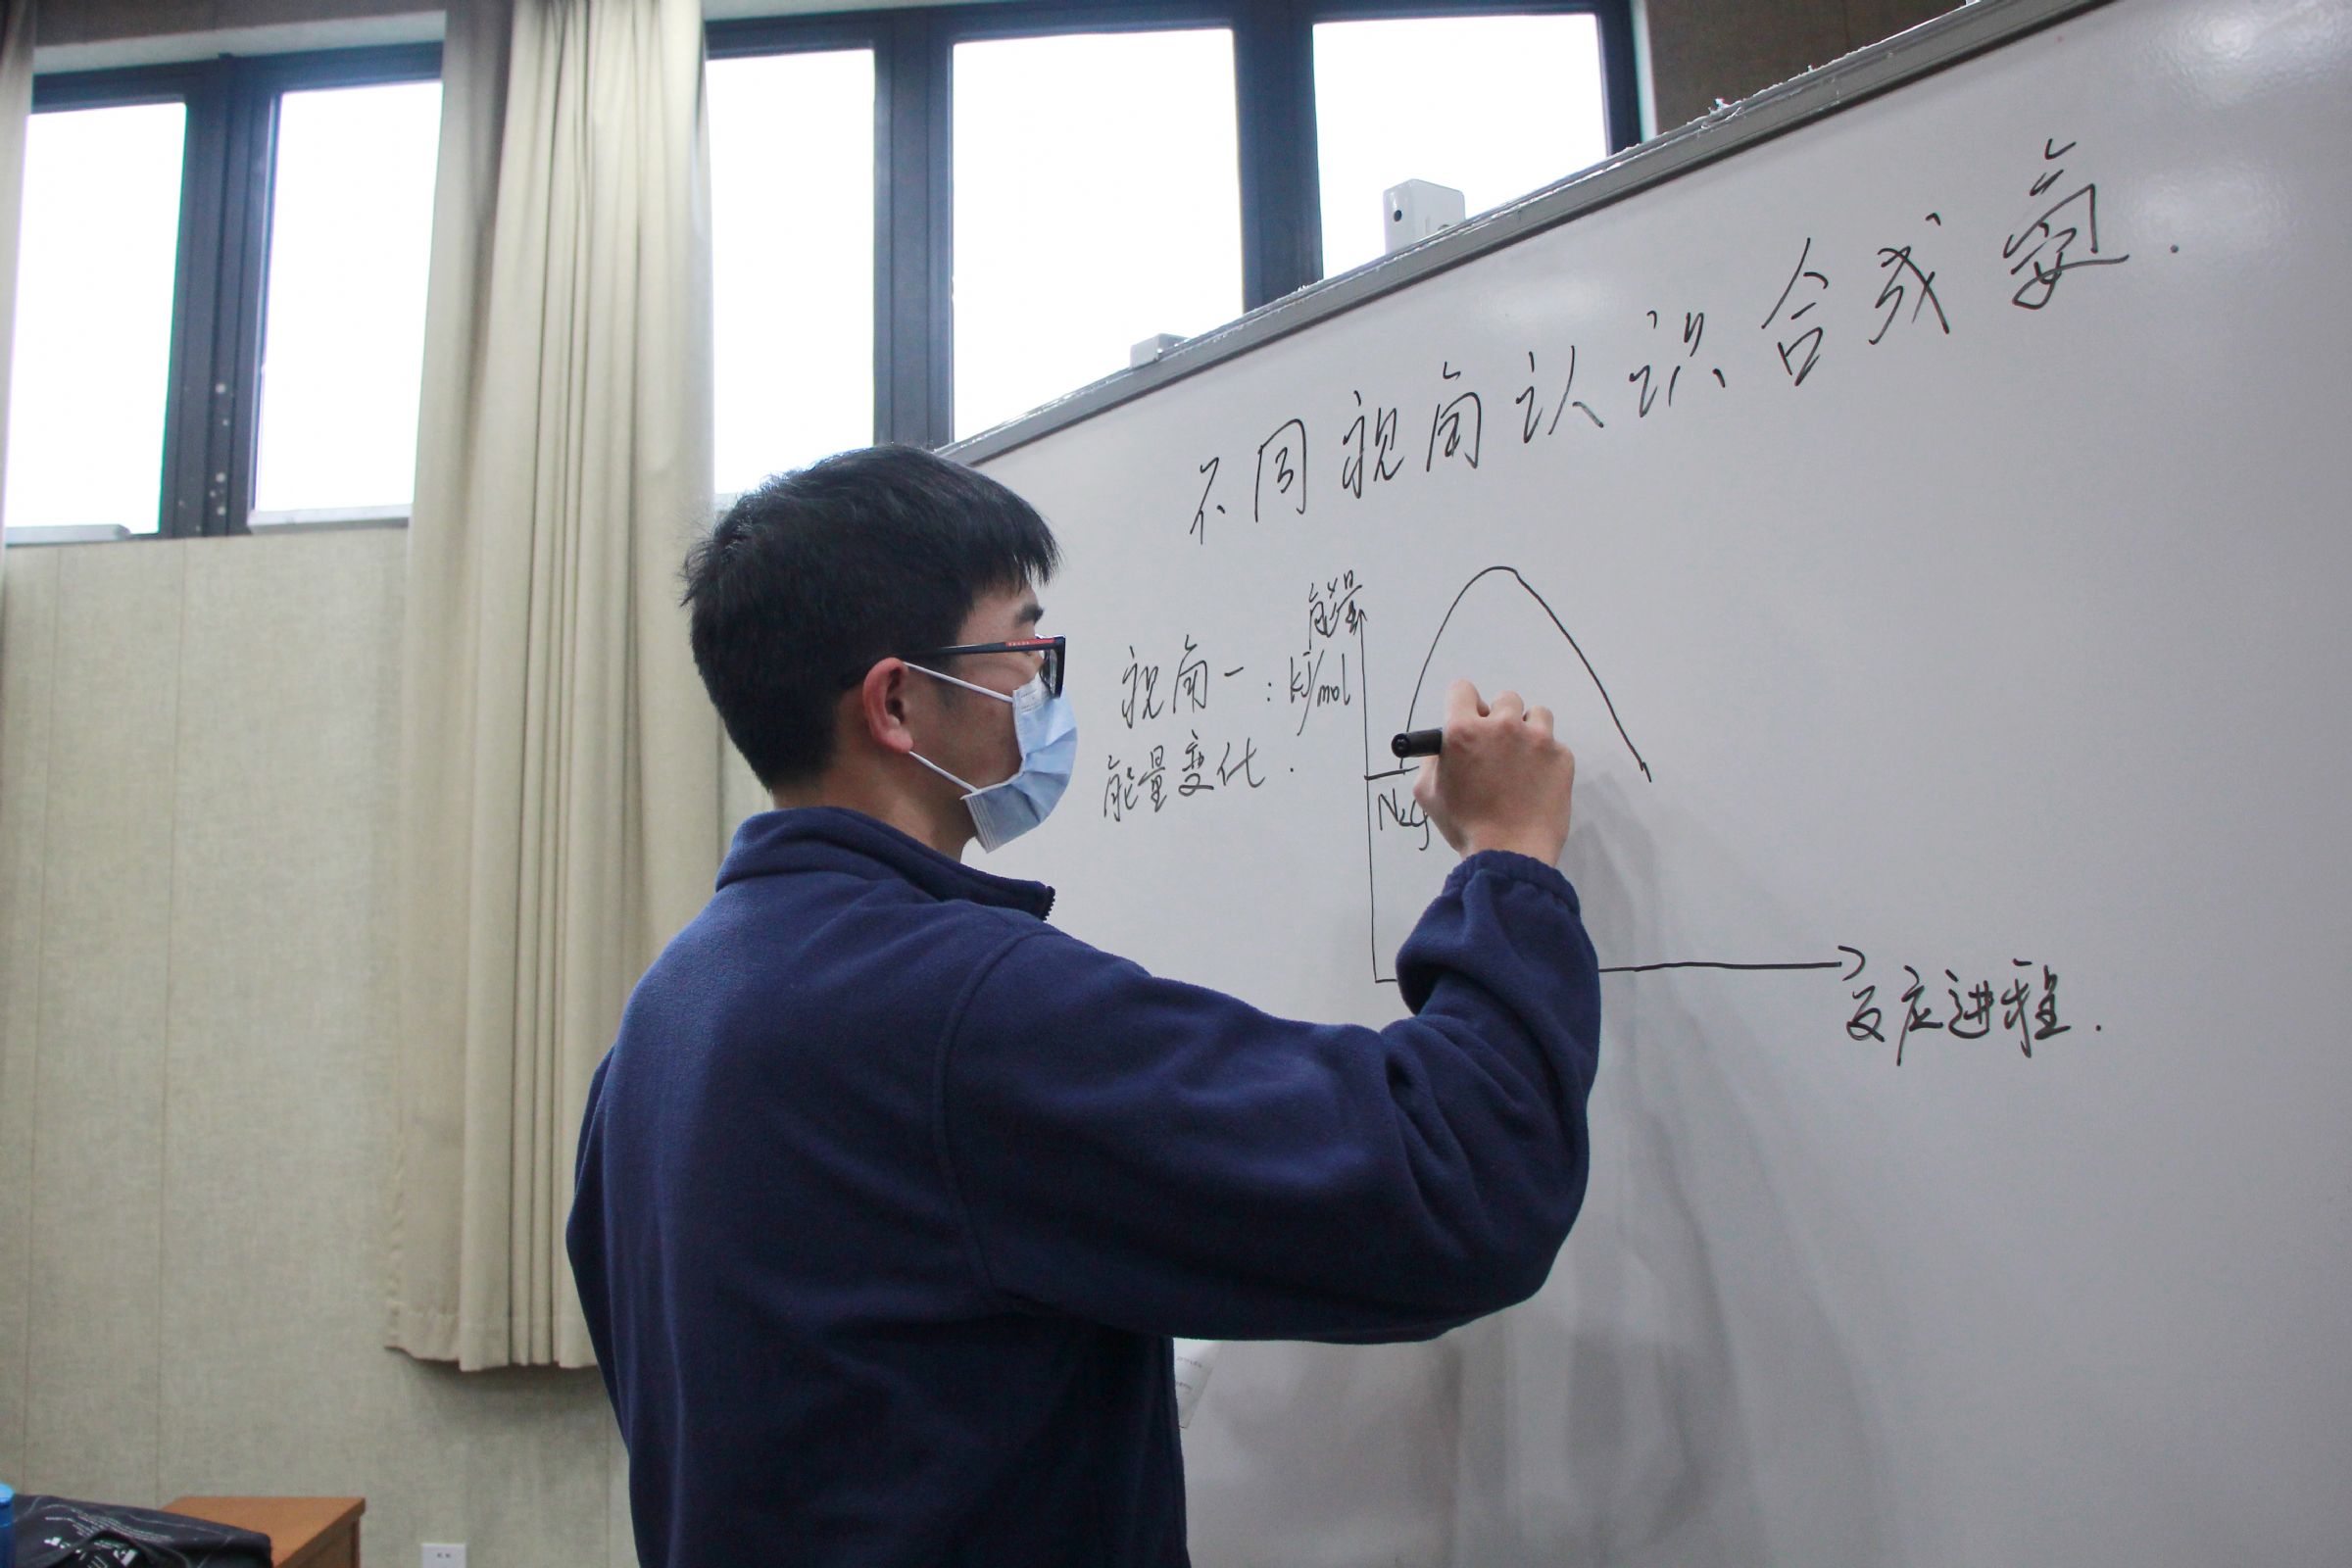 不同视角认识合成氨.
视角一:
能量变化.
能量
kJ/mol
N₂(g
反应进程.